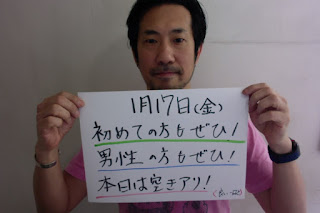 1月17日(金)
初めての方もぜひ!
男性の方もぜひ!
本日は空きアリ!